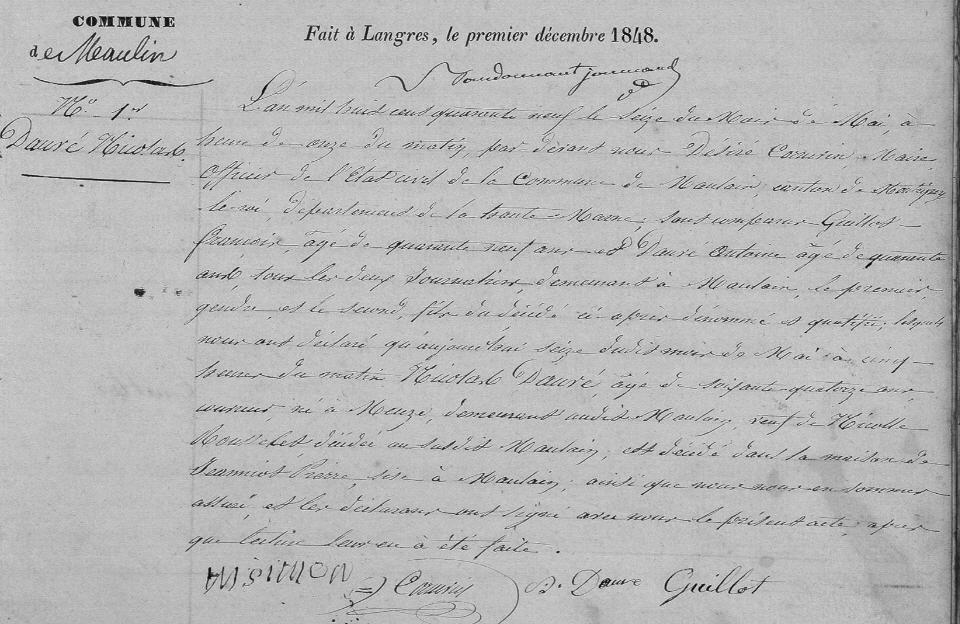 COMMUNE
de Maulin
Fait à Langres, le premier décembre 1848.
N.º 1er
Dauré Nicolas.
L'An mil huit cent quarante neuf le Seize du Mois de Mai, à
heure de onze du matin, par devant nous Désiré Cornevin Maire
officier de l'état civil de la Commune de Maulain, canton de Montigny
le roi, département de la haute Marne, sont comparus Guillot
françois, âgé de quarante neuf ans et Dauré Antoine âgé de quarante
ans, tous les deux Journaliers, demeurant à Maulain, le premier,
gendre, et le second, fils du décédé ci après dénommé et qualifié, lesquels
nous ont déclaré qu'aujourd'hui seize dudit mois de Mai à cinq
heures du matin Nicolas Dauré, âgé de soixante quatorze ans,
né à Meuze, demeurant audit Maulain, veuf de Nicolle
décédée au susdit Maulain, est décédé dans la maison de
Jeanniot Pierre, sise à Maulain, ainsi que nous nous en sommes
assuré, et les déclarans ont signé avec nous le présent acte, après
que lecture leur en à été faite.
Dauré Guillot